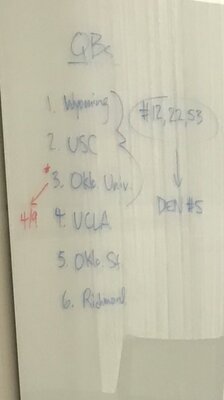 QBs
1. Wyoming
2. USC
* 3. Okla. Univ.
4. UCLA
5. Okla. St.
6. Richmond
#12, 22, 53
DEN #5
4/9